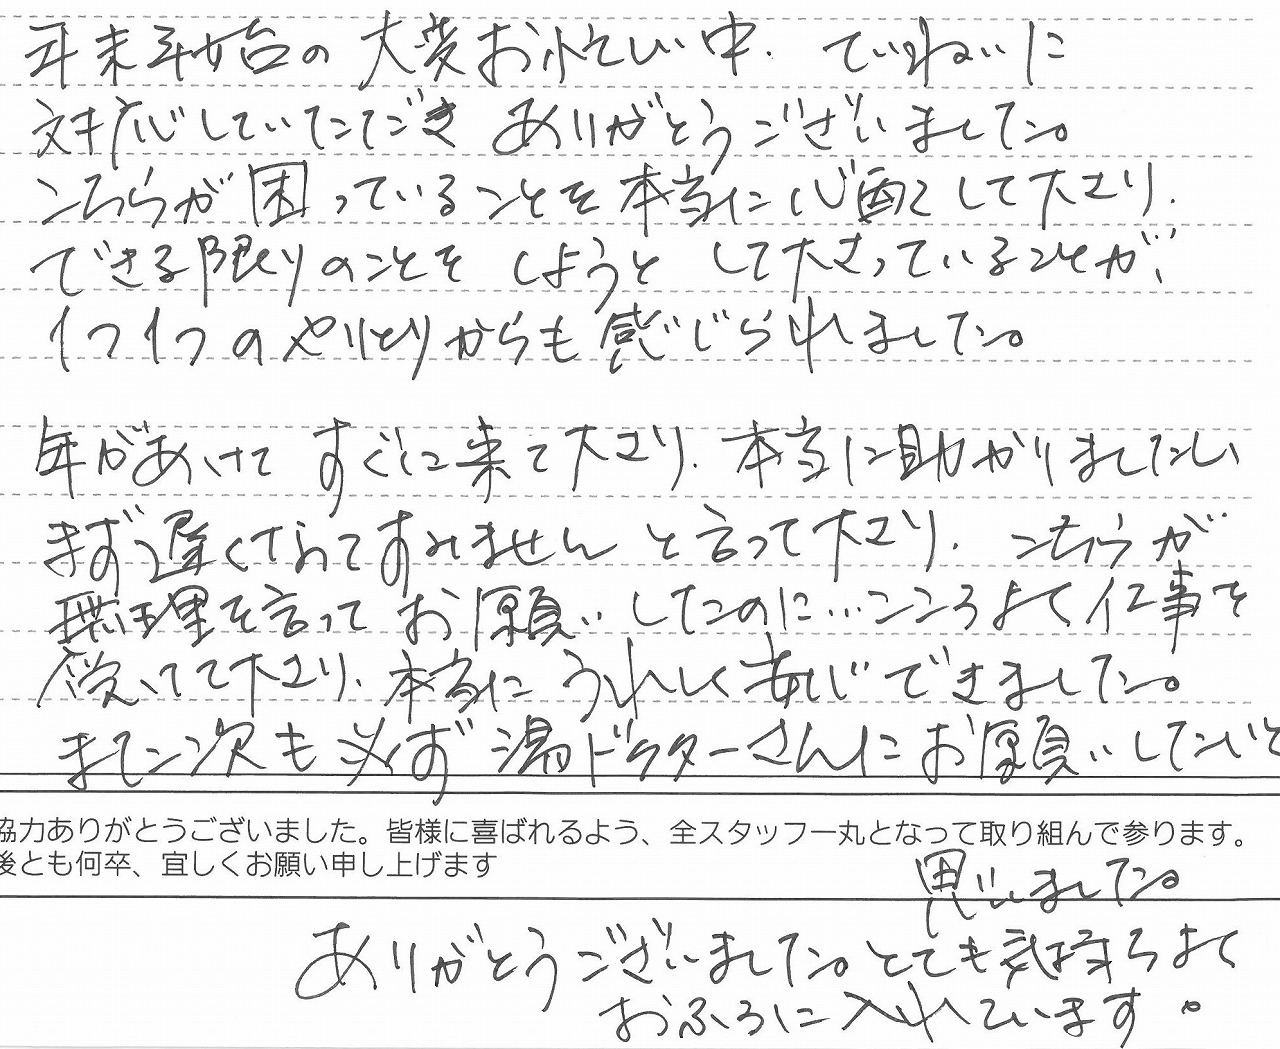 年末年始の大変お忙しい中、ていねいに
対応していただき ありがとうございました。
こちらが困っていることを本当に心配して下さり、
できる限りのことを しようと して下さっていることが、
1つ1つのやりとりからも感じられました。
年があけて すぐに来て下さり、本当に助かりました
まず遅くなってすみません と言って下さり、こちらが
無理を言って お願いしたのに…こころよく仕事を
受けて下さり、本当に うれしく 安心できました。
また次も必ず湯ドクターさんにお願いしたいと
協力ありがとうございました。皆様に喜ばれるよう、全スタッフ一丸となって取り組んで参ります。
後とも何卒、宜しくお願い申し上げます
思いました。
ありがとうございました。とても気持ちよく
おふろに入れています。